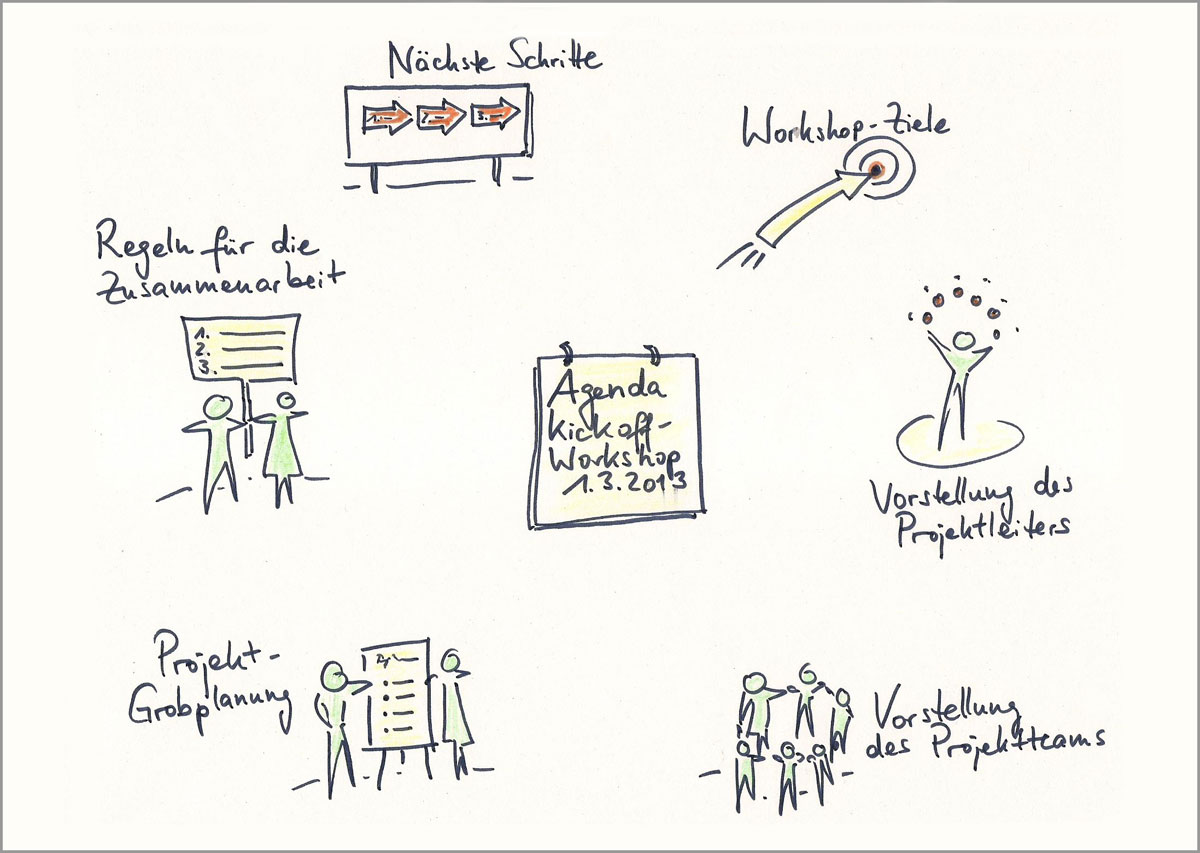 Nächste Schritte
1.
2.
3.
Workshop-Ziele
Regeln für die
Zusammenarbeit
1.
2.
3.
Agenda
Kickoff-
Workshop
1.3.2013
Vorstellung des
Projektleiters
Projekt-
Grobplanung
Vorstellung
des Projektteams